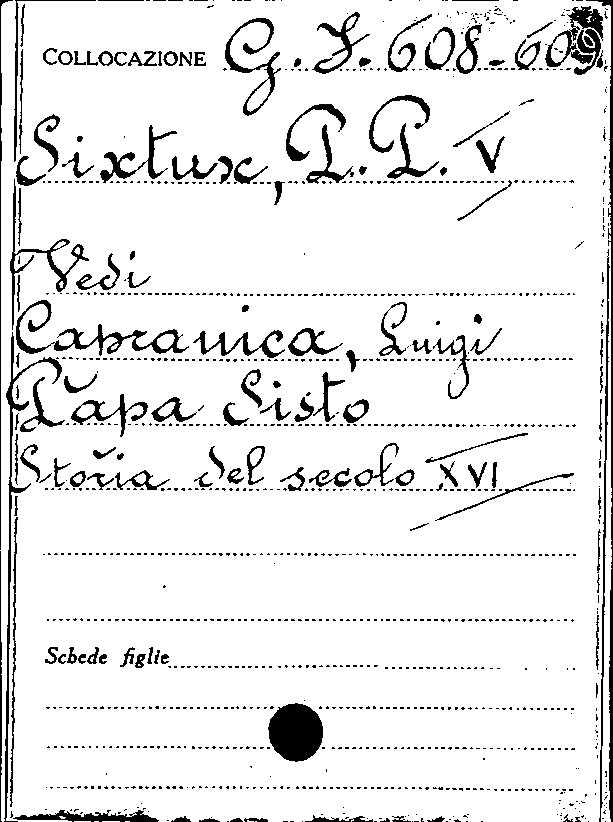 COLLOCAZIONE G. F. 608-609
Sixtus, P. P. V
Vedi
Capranica, Luigi
Papa Sisto
Storia del secolo XVI
Schede figlie